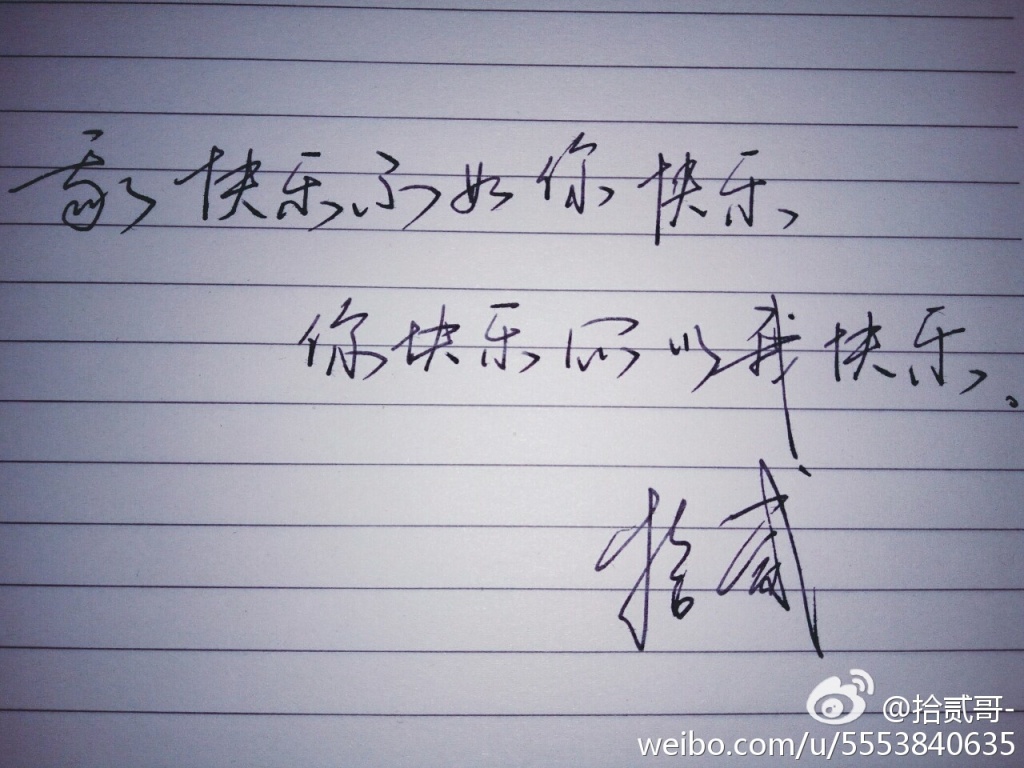 我快乐不如你快乐
你快乐所以我快乐。
拾贰
@拾贰哥-
weibo.com/u/5553840635